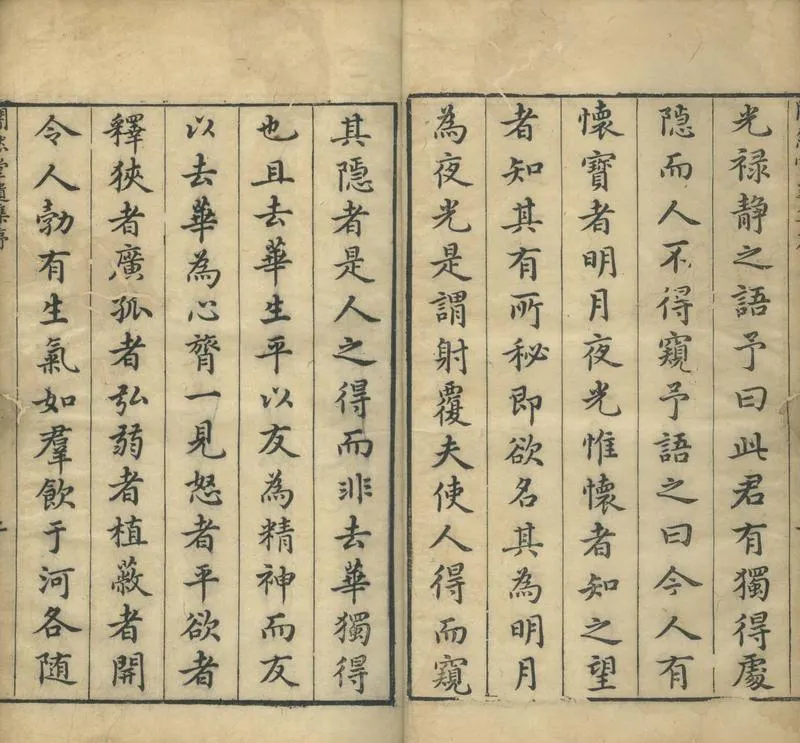 光禄静之語予曰此君有獨得處
隐而人不得窺予語之曰今人有
懷寶者明月夜光惟懷者知之望
者知其有所秘即欲名其為明月
為夜光是謂射覆夫使人得而窺
其隱者是人之得而非去華獨得
也且去華生平以友為精神而友
以去華為心膂一見怒者平欲者
釋狹者廣孤者弘弱者植蔽者開
令人勃有生氣如羣飲于河各随
闇然堂遺集序